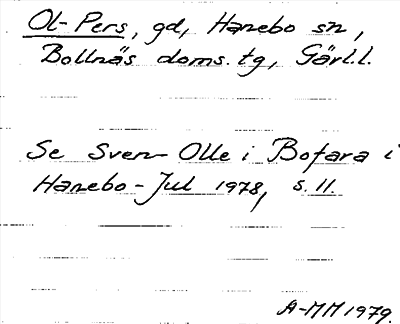 Ol-Pers, gd, Hanebo sn,
Bollnäs doms.tg, Gävl.l.
Se Sven-Olle i Bofara i
Hanebo-Jul 1978, s. 11.
A-MM 1979.